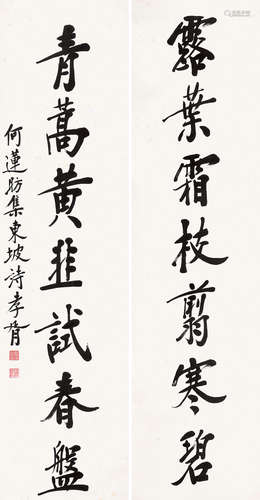 露葉霜枝翦寒碧
青蒿黃韭試春盤
何蓮舫集東坡詩孝胥